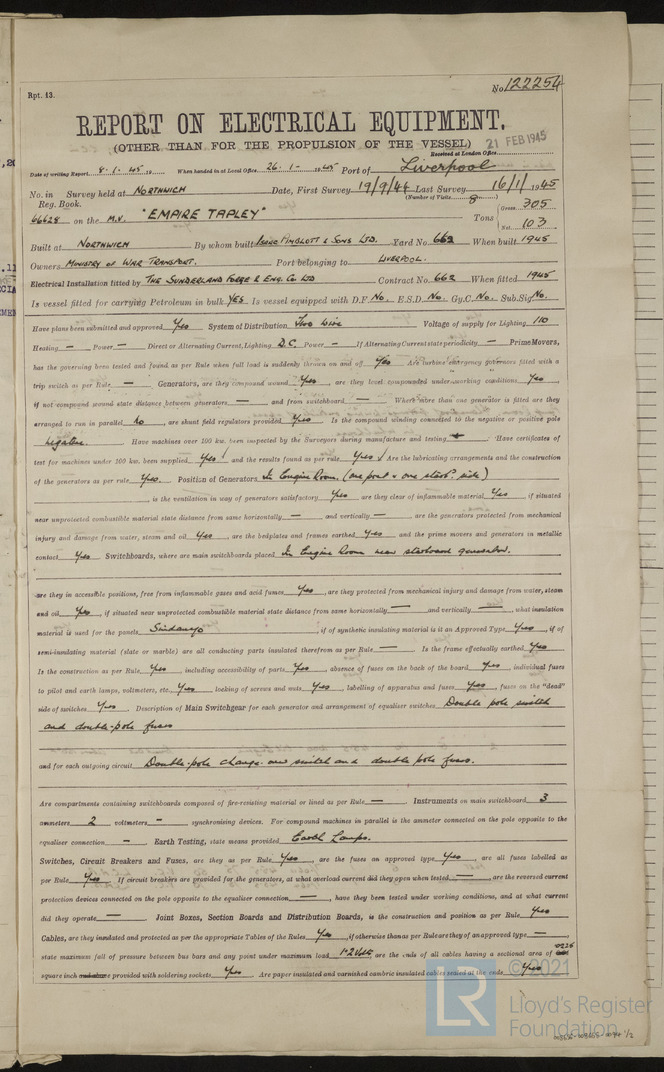 Rpt. 13.
No. 122254
REPORT ON ELECTRICAL EQUIPMENT.
(OTHER THAN FOR THE PROPULSION OF THE VESSEL)
21 FEB 1945
Received at London Office
Date of writing Report 8.1.45 19 When handed in at Local Office 26.1- 1945 Port of Liverpool
No. in Survey held at NORTHWICH Date, First Survey 19/9/44 Last Survey 16/1/1945
Reg. Book. (Number of Visits 8)
66628 on the M.V. "EMPIRE TAPLEY" Tons Gross 305
Net 103
Built at NORTHWICH By whom built ISAAC PIMBLOTT & SONS LTD. Yard No. 662 When built 1945
Owners MINISTRY OF WAR TRANSPORT. Port belonging to LIVERPOOL.
Electrical Installation fitted by THE SUNDERLAND FORGE & ENG. CO LTD Contract No. 662 When fitted 1945
Is vessel fitted for carrying Petroleum in bulk YES Is vessel equipped with D.F. No. E.S.D. No. Gy.C. No. Sub.Sig. No.
Have plans been submitted and approved Yes System of Distribution Two wire Voltage of supply for Lighting 110
Heating — Power — Direct or Alternating Current, Lighting D.C. Power — If Alternating Current state periodicity — Prime Movers,
has the governing been tested and found as per Rule when full load is suddenly thrown on and off Yes Are turbine emergency governors fitted with a
trip switch as per Rule — Generators, are they compound wound Yes, are they level compounded under working conditions Yes,
if not compound wound state distance between generators — and from switchboard — Where more than one generator is fitted are they
arranged to run in parallel No, are shunt field regulators provided Yes Is the compound winding connected to the negative or positive pole
negative. Have machines over 100 kw. been inspected by the Surveyors during manufacture and testing — Have certificates of
test for machines under 100 kw. been supplied Yes and the results found as per rule Yes Are the lubricating arrangements and the construction
of the generators as per rule Yes. Position of Generators In Engine Room (one port & one starbd. side)
, is the ventilation in way of generators satisfactory Yes are they clear of inflammable material Yes, if situated
near unprotected combustible material state distance from same horizontally — and vertically —, are the generators protected from mechanical
injury and damage from water, steam and oil Yes, are the bedplates and frames earthed Yes and the prime movers and generators in metallic
contact Yes Switchboards, where are main switchboards placed In Engine Room near starboard generator.
are they in accessible positions, free from inflammable gases and acid fumes Yes, are they protected from mechanical injury and damage from water, steam
and oil Yes, if situated near unprotected combustible material state distance from same horizontally — and vertically —, what insulation
material is used for the panels Sindanyo, if of synthetic insulating material is it an Approved Type Yes, if of
semi-insulating material (slate or marble) are all conducting parts insulated therefrom as per Rule — Is the frame effectually earthed Yes
Is the construction as per Rule Yes, including accessibility of parts Yes, absence of fuses on the back of the board Yes, individual fuses
to pilot and earth lamps, voltmeters, etc. Yes locking of screws and nuts Yes, labelling of apparatus and fuses Yes, fuses on the "dead"
side of switches Yes. Description of Main Switchgear for each generator and arrangement of equaliser switches Double pole switch
and double-pole fuses
and for each outgoing circuit Double-pole change-over switch and double pole fuses.
Are compartments containing switchboards composed of fire-resisting material or lined as per Rule —. Instruments on main switchboard 3
ammeters 2 voltmeters — synchronising devices. For compound machines in parallel is the ammeter connected on the pole opposite to the
equaliser connection —. Earth Testing, state means provided Earth Lamps.
Switches, Circuit Breakers and Fuses, are they as per Rule Yes, are the fuses an approved type Yes, are all fuses labelled as
per Rule Yes If circuit breakers are provided for the generators, at what overload current did they open when tested — are the reversed current
protection devices connected on the pole opposite to the equaliser connection —, have they been tested under working conditions, and at what current
did they operate —. Joint Boxes, Section Boards and Distribution Boards, is the construction and position as per Rule Yes
Cables, are they insulated and protected as per the appropriate Tables of the Rules Yes, if otherwise than as per Rule are they of an approved type —,
state maximum fall of pressure between bus bars and any point under maximum load 1.2 Volts, are the ends of all cables having a sectional area of .0226
square inch provided with soldering sockets Yes. Are paper insulated and varnished cambric insulated cables sealed at the ends Yes
© 2021
LR
Lloyd's Register
Foundation